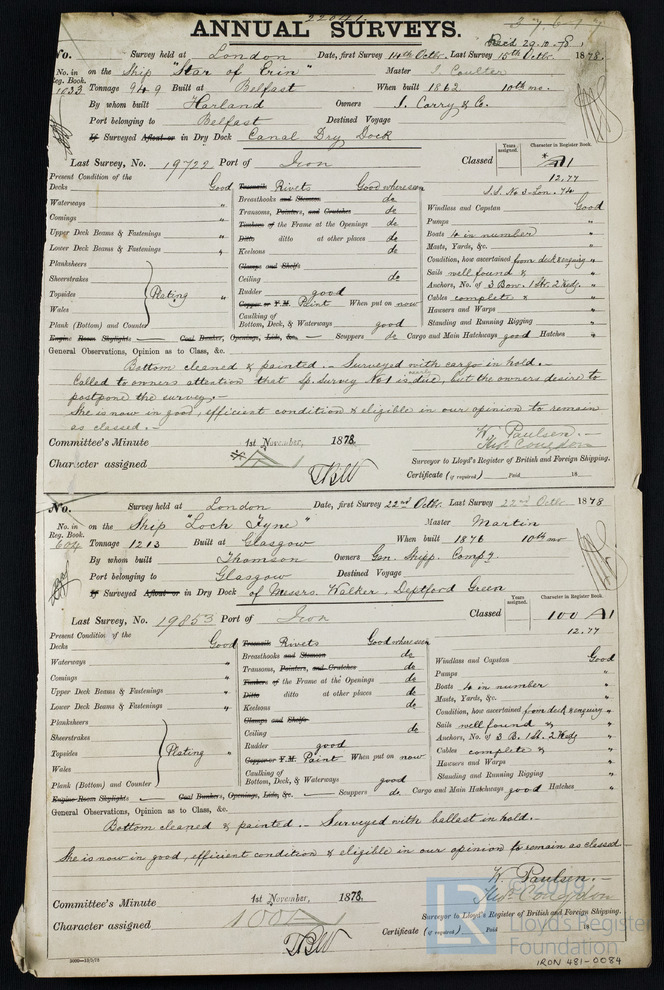 ANNUAL SURVEYS.
Rec'd 29.10.78
No. Survey held at London Date, first Survey 14th Octbr. Last Survey 15th Octbr. 1878.
No. in Reg. Book. on the Ship "Star of Erin" Master J. Coulter
1033 Tonnage 949 Built at Belfast When built 1862 10th mo.
By whom built Harland Owners J. Corry & Co.
Port belonging to Belfast Destined Voyage
If Surveyed Afloat or in Dry Dock Canal Dry Dock
Last Survey, No. 19722 Port of Iron Classed
Years assigned. Character in Register Book.
A1
12,77
S.S. No 3 Lon. 74
Present Condition of the
Decks Good
Waterways "
Comings "
Upper Deck Beams & Fastenings "
Lower Deck Beams & Fastenings "
Planksheers
Sheerstrakes
Topsides Plating "
Wales
Plank (Bottom) and Counter
Treenails Rivets Good where seen
Breasthooks and Stemson do
Transoms, Pointers, and Crutches do
Timbers of the Frame at the Openings do
Ditto ditto at other places do
Keelsons do
Clamps and Shelfs
Ceiling do
Rudder good
Copper or Y.M. Paint When put on now
Caulking of Bottom, Deck, & Waterways good
Windlass and Capstan Good
Pumps "
Boats 4 in number "
Masts, Yards, &c. "
Condition, how ascertained from deck & enquiry "
Sails well found & "
Anchors, No. of 3 Bow. 1 St. 2 Kedg. "
Cables complete & "
Hawsers and Warps "
Standing and Running Rigging "
Engine Room Skylights — Coal Bunker, Openings, Lids, &c. — Scuppers do Cargo and Main Hatchways good Hatches "
General Observations, Opinion as to Class, &c.
Bottom cleaned & painted. — Surveyed with cargo in hold. —
Called to owners attention that Sp. Survey No 1 is nearly due, but the owners desire to
postpone the survey. —
She is now in good, efficient condition & eligible in our opinion to remain
as classed. —
W. Paulsen. —
Thos. Congdon
Committee's Minute 1st November, 1878.
Character assigned
Surveyor to Lloyd's Register of British and Foreign Shipping.
Certificate (if required) Paid 18
No. Survey held at London Date, first Survey 22nd Octbr. Last Survey 22nd Octbr 1878
No. in Reg. Book. on the Ship "Loch Fyne" Master Martin
604 Tonnage 1213 Built at Glasgow When built 1876 10th mo
By whom built Thomson Owners Gen. Shipp. Compy.
Port belonging to Glasgow Destined Voyage
If Surveyed Afloat or in Dry Dock of Messrs. Walker, Deptford Green
Last Survey, No. 19853 Port of Iron Classed
Years assigned. Character in Register Book.
100 A1
12,77
Present Condition of the
Decks Good
Waterways "
Comings "
Upper Deck Beams & Fastenings "
Lower Deck Beams & Fastenings "
Planksheers
Sheerstrakes
Topsides Plating "
Wales
Plank (Bottom) and Counter
Treenails Rivets Good where seen
Breasthooks and Stemson do
Transoms, Pointers, and Crutches do
Timbers of the Frame at the Openings do
Ditto ditto at other places do
Keelsons do
Clamps and Shelfs
Ceiling do
Rudder good
Copper or Y.M. Paint When put on now
Caulking of Bottom, Deck, & Waterways good
Windlass and Capstan Good
Pumps "
Boats 4 in number "
Masts, Yards, &c. "
Condition, how ascertained from deck & enquiry "
Sails well found & "
Anchors, No. of 3 B. 1 St. 2 Kedg "
Cables complete & "
Hawsers and Warps "
Standing and Running Rigging "
Engine Room Skylights — Coal Bunkers, Openings, Lids, &c. — Scuppers do Cargo and Main Hatchways good Hatches "
General Observations, Opinion as to Class, &c.
Bottom cleaned & painted. — Surveyed with ballast in hold. —
She is now in good, efficient condition & eligible in our opinion to remain as classed —
W. Paulsen. —
Thos. Congdon
Committee's Minute 1st November, 1878.
Character assigned 100A
Surveyor to Lloyd's Register of British and Foreign Shipping.
Certificate (if required) Paid 18
LR © 2019
Lloyd's Register
Foundation
IRON 481-0084